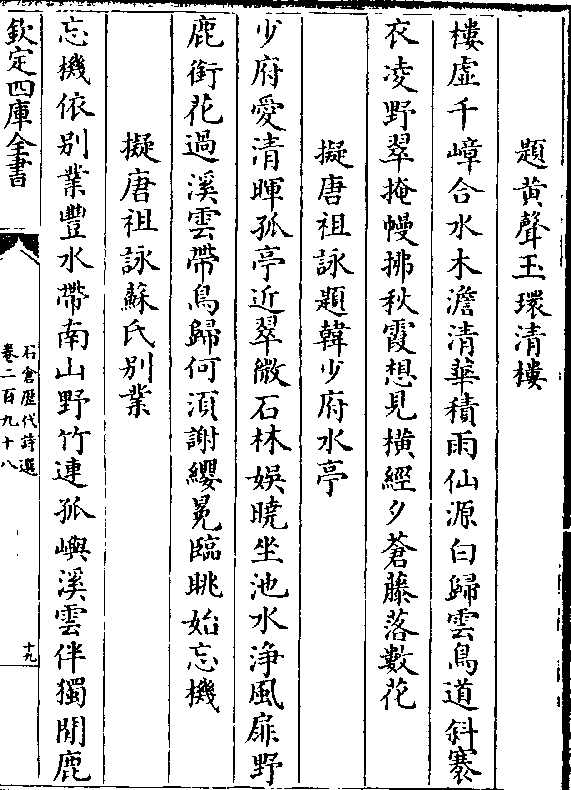 題黃聲玉環清樓
樓虛千嶂合水木澹清華積雨仙源白歸雲鳥道斜褰
衣凌野翠掩幔拂秋霞想見橫經夕蒼藤落數花
擬唐祖詠題韓少府水亭
少府愛清暉孤亭近翠微石林娛曉坐池水浄風扉野
鹿銜花過溪雲帶鳥歸何須謝纓冕臨眺始忘機
擬唐祖詠蘇氏別業
忘機依别業豐水帶南山野竹連孤嶼溪雲伴獨閒鹿
欽定四庫全書
石倉歴代詩選
卷二百九十八
十九